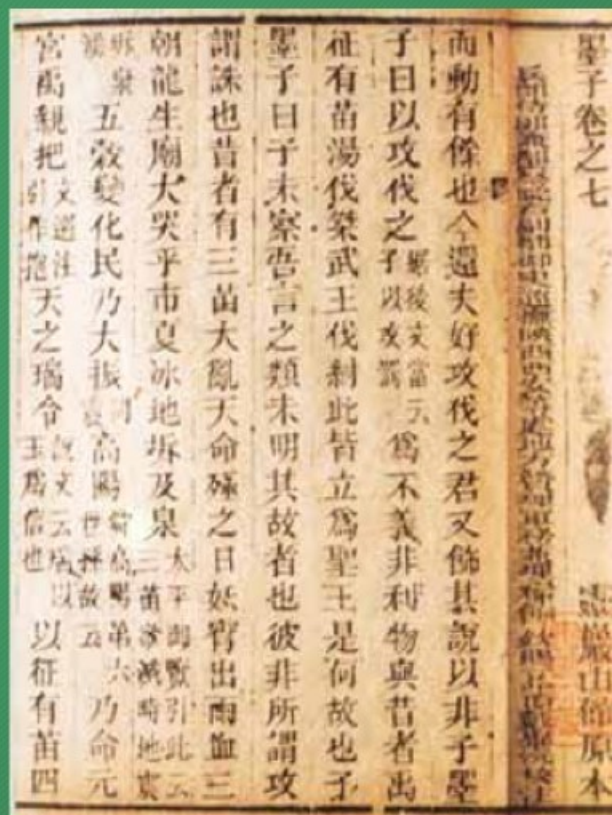 墨子卷之七 靈巖山館原本
巡撫陝西西安等處地方贊理軍務兼理糧餉
而動有餘也今遝夫好攻伐之君又飾其說以非子墨
子曰以攻伐之據後文當云子以攻伐爲不義非利物與昔者禹
征有苗湯伐桀武王伐紂此皆立爲聖王是何故也子
墨子曰子未察吾言之類未明其故者也彼非所謂攻
謂誅也昔者有三苗大亂天命殛之日妖宵出雨血三
朝龍生廟犬哭乎市夏冰地坼及泉太平御覽引此云三苗欲滅時地震
坼泉湧五穀變化民乃大振同震高陽舜高陽第六世孫故云乃命元
宮禹親把文選注引作抱天之瑞令說文云瑞以玉爲信也以征有苗四